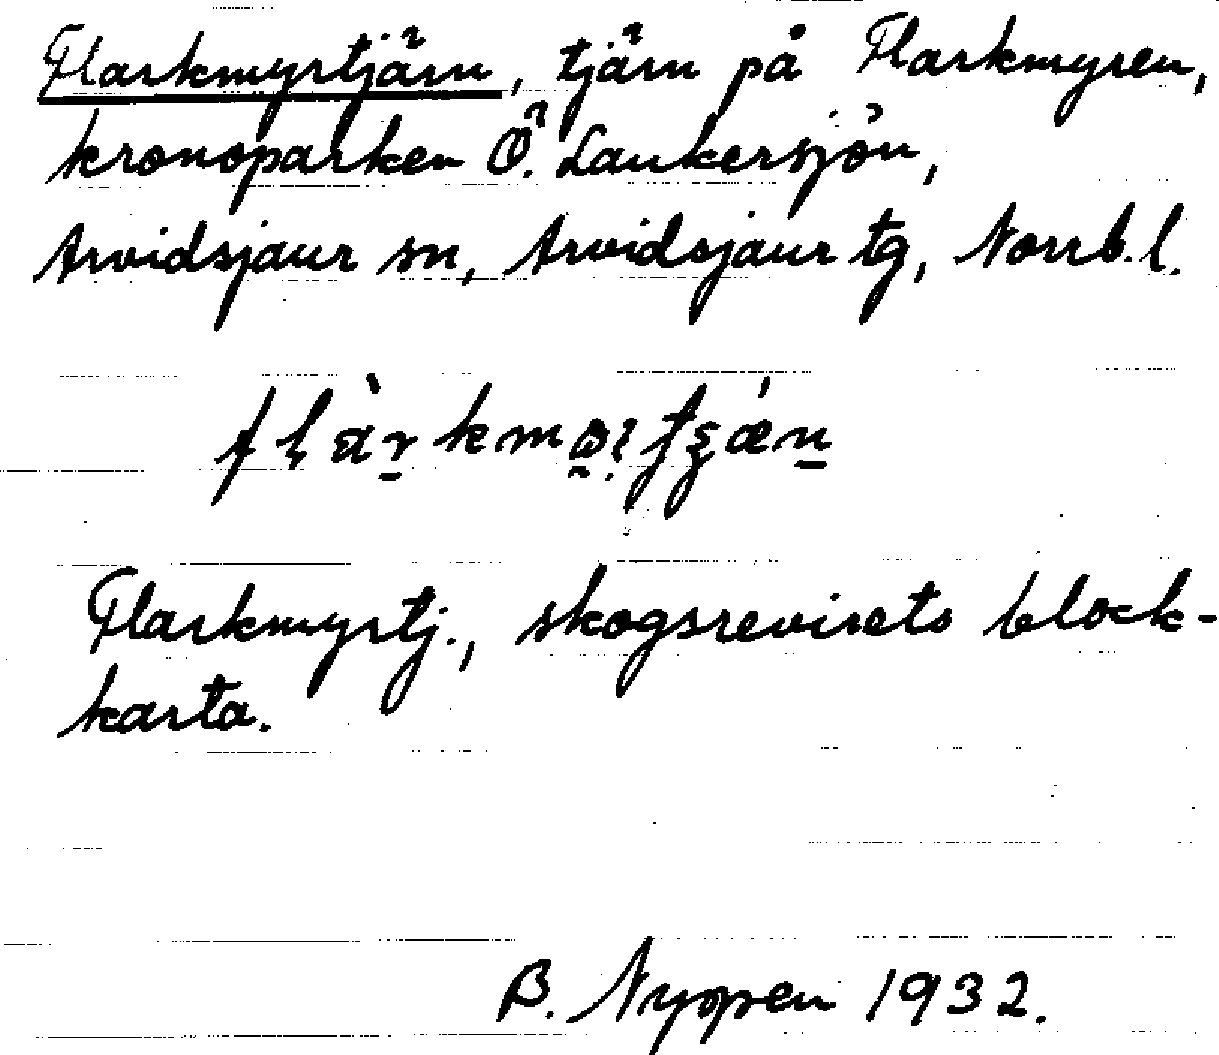 Flarkmyrtjärn, tjärn på Flarkmyren,
kronoparken Ö. Laukersjön,
Arvidsjaur sn, Arvidsjaur tg, Norrb.l.
Flarkmyrtj., skogsrevirets block-
karta.
B. Nyopen 1932.